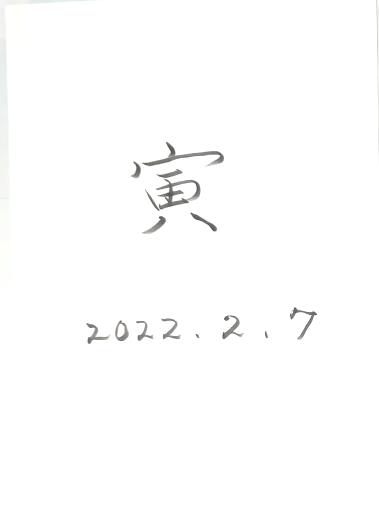 寅
2022.2.7